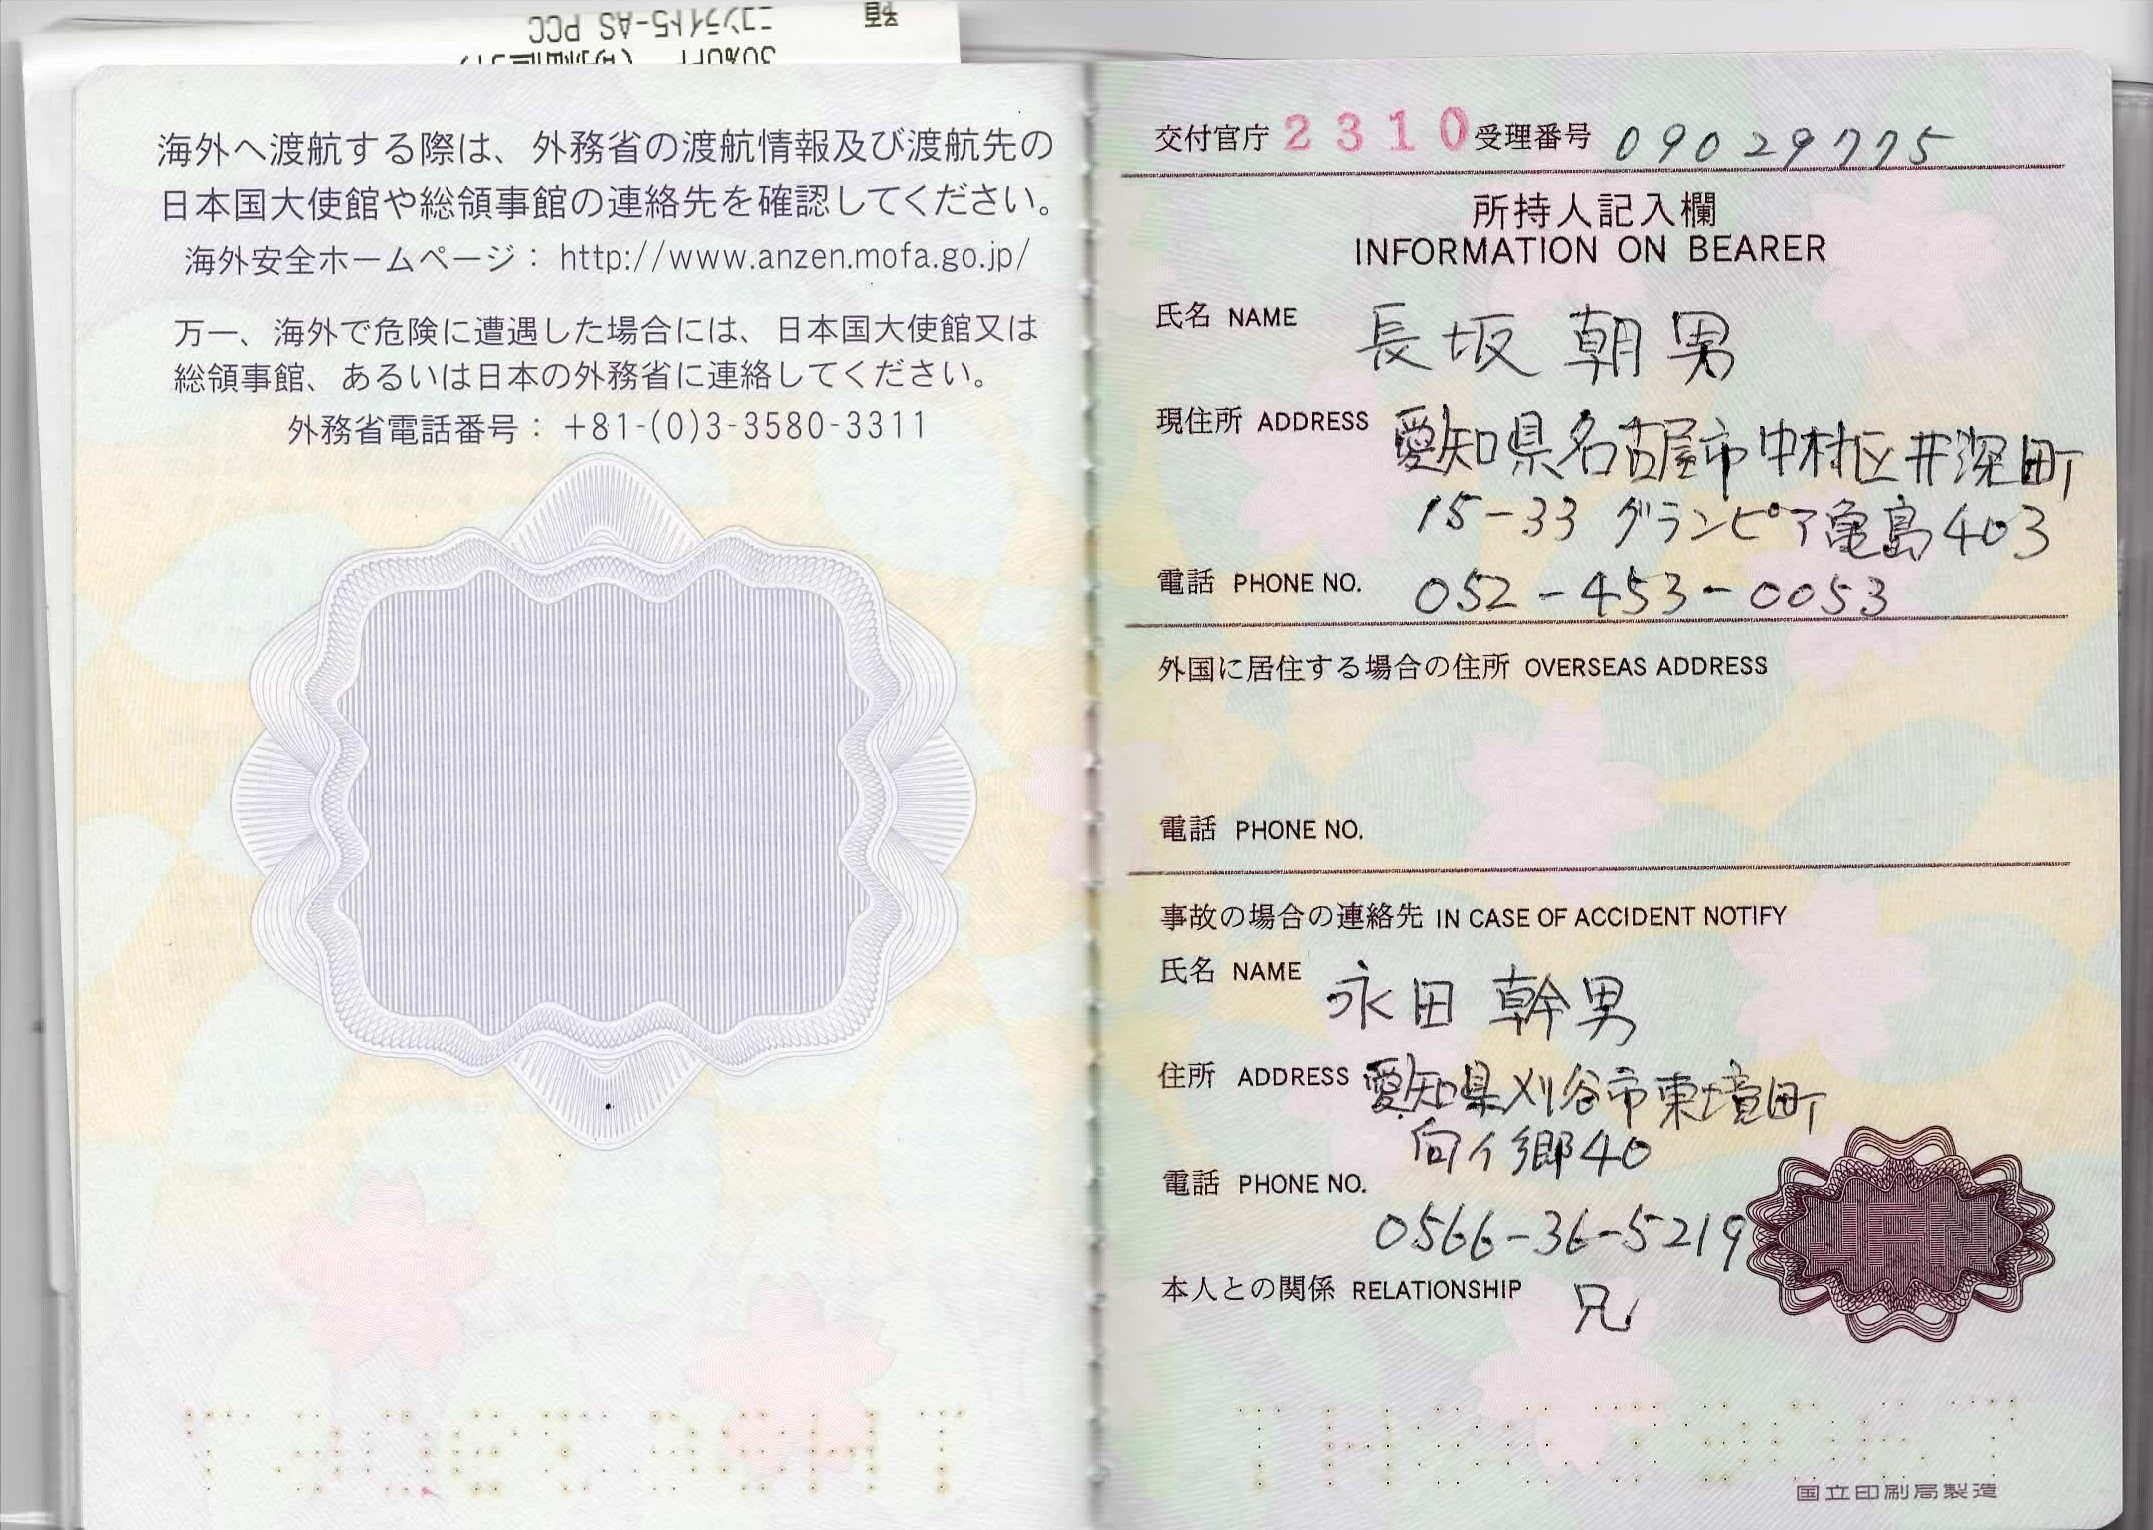 海外へ渡航する際は、外務省の渡航情報及び渡航先の
日本国大使館や総領事館の連絡先を確認してください。
海外安全ホームページ： http://www.anzen.mofa.go.jp/
万一、海外で危険に遭遇した場合には、日本国大使館又は
総領事館、あるいは日本の外務省に連絡してください。
外務省電話番号： +81-(0)3-3580-3311
交付官庁 2310 受理番号 09029775
所持人記入欄
INFORMATION ON BEARER
氏名 NAME 長坂 朝男
現住所 ADDRESS 愛知県名古屋市中村区井深町
15-33 グランピア亀島403
電話 PHONE NO. 052-453-0053
外国に居住する場合の住所 OVERSEAS ADDRESS
電話 PHONE NO.
事故の場合の連絡先 IN CASE OF ACCIDENT NOTIFY
氏名 NAME 永田 幹男
住所 ADDRESS 愛知県刈谷市東境町
向イ郷40
電話 PHONE NO.
0566-36-5219
本人との関係 RELATIONSHIP 兄
JPN
国立印刷局製造